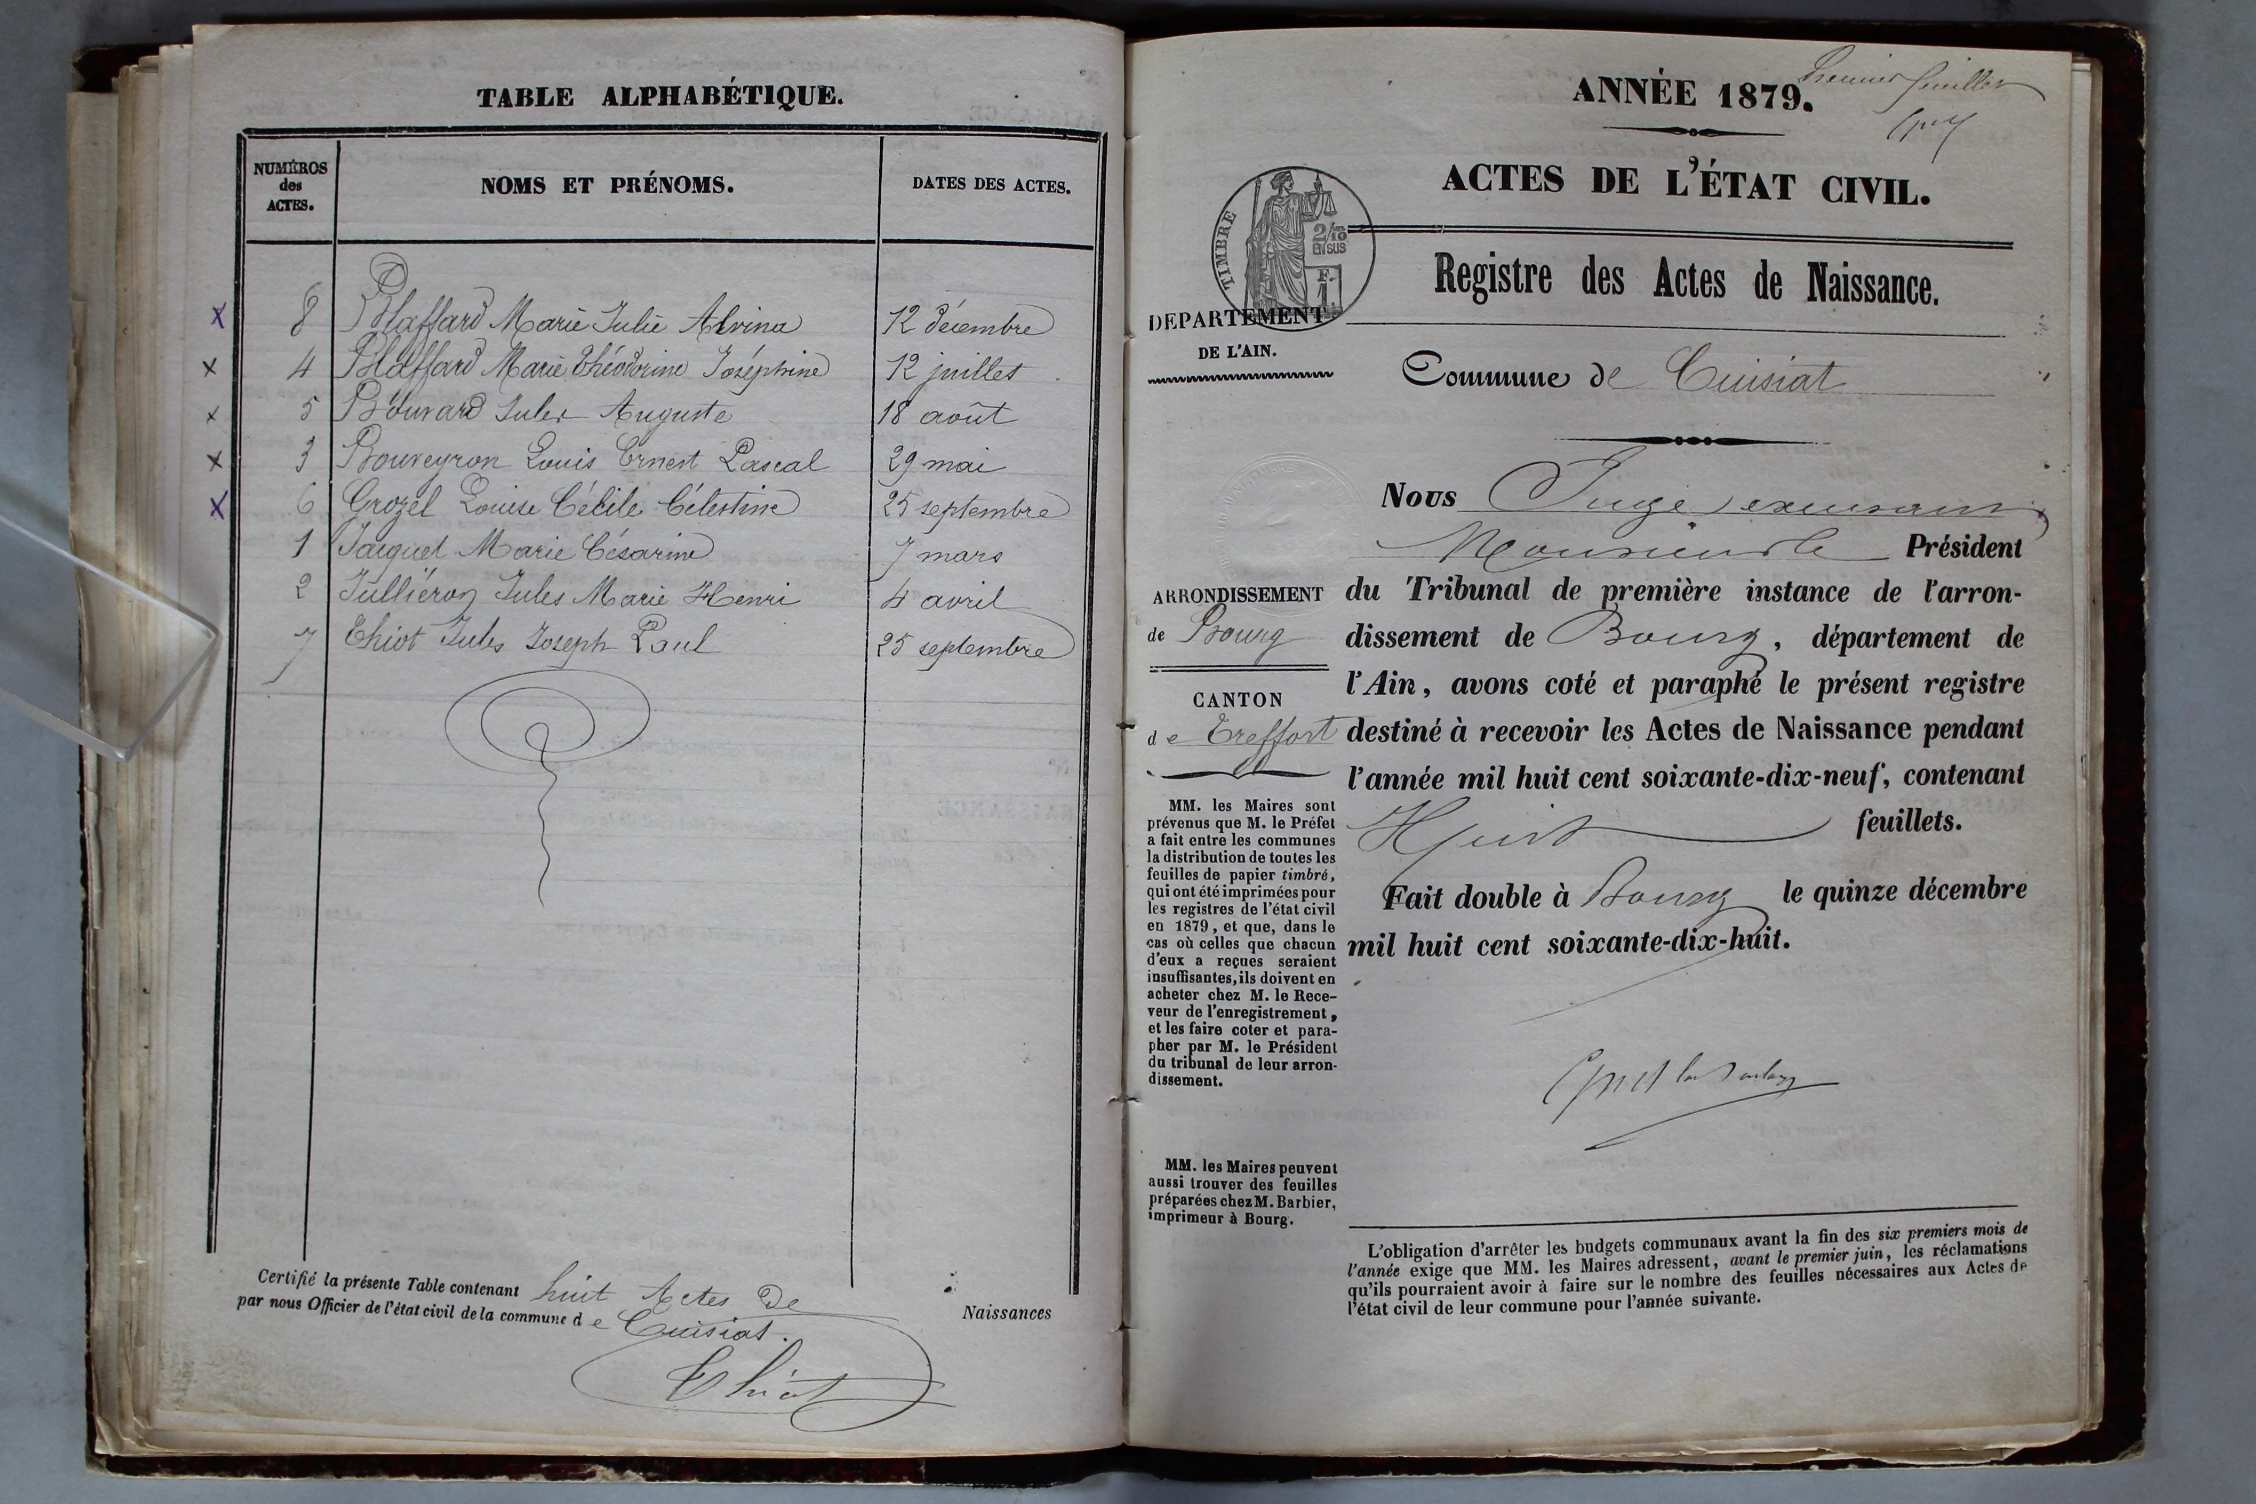 TABLE ALPHABÉTIQUE.
NUMÉROS des ACTES. NOMS ET PRÉNOMS. DATES DES ACTES.
x 8 Blaffard Marie Julie Alvina 12 décembre
x 4 Blaffard Marie Théodorine Joséphine 12 juillet
x 5 Bouvard Jules Auguste 18 août
x 3 Bouveyron Louis Ernest Pascal 29 mai
x 6 Grozel Louise Cécile Célestine 25 septembre
1 Jacquet Marie Césarine 7 mars
2 Julliéron Jules Marie Henri 4 avril
7 Chiot Jules Joseph Paul 25 septembre
Certifié la présente Table contenant huit Actes de Naissances
par nous Officier de l'état civil de la commune de Cuisiat.
Chiot
Premier feuillet
ANNÉE 1879.
ACTES DE L'ÉTAT CIVIL.
TIMBRE
2/10
EN SUS
F.
1
Registre des Actes de Naissance.
DEPARTEMENT
DE L'AIN.
Commune de Cuisiat
ARRONDISSEMENT
de Bourg
CANTON
de Treffort
MM. les Maires sont
prévenus que M. le Préfet
a fait entre les communes
la distribution de toutes les
feuilles de papier timbré,
qui ont été imprimées pour
les registres de l'état civil
en 1879, et que, dans le
cas où celles que chacun
d'eux a reçues seraient
insuffisantes, ils doivent en
acheter chez M. le Rece-
veur de l'enregistrement,
et les faire coter et para-
pher par M. le Président
du tribunal de leur arron-
dissement.
MM. les Maires peuvent
aussi trouver des feuilles
préparées chez M. Barbier,
imprimeur à Bourg.
Nous Juge
Monsieur le Président
du Tribunal de première instance de l'arron-
dissement de Bourg, département de
l'Ain, avons coté et paraphé le présent registre
destiné à recevoir les Actes de Naissance pendant
l'année mil huit cent soixante-dix-neuf, contenant
Huit feuillets.
Fait double à Bourg le quinze décembre
mil huit cent soixante-dix-huit.
L'obligation d'arrêter les budgets communaux avant la fin des six premiers mois de
l'année exige que MM. les Maires adressent, avant le premier juin, les réclamations
qu'ils pourraient avoir à faire sur le nombre des feuilles nécessaires aux Actes de
l'état civil de leur commune pour l'année suivante.